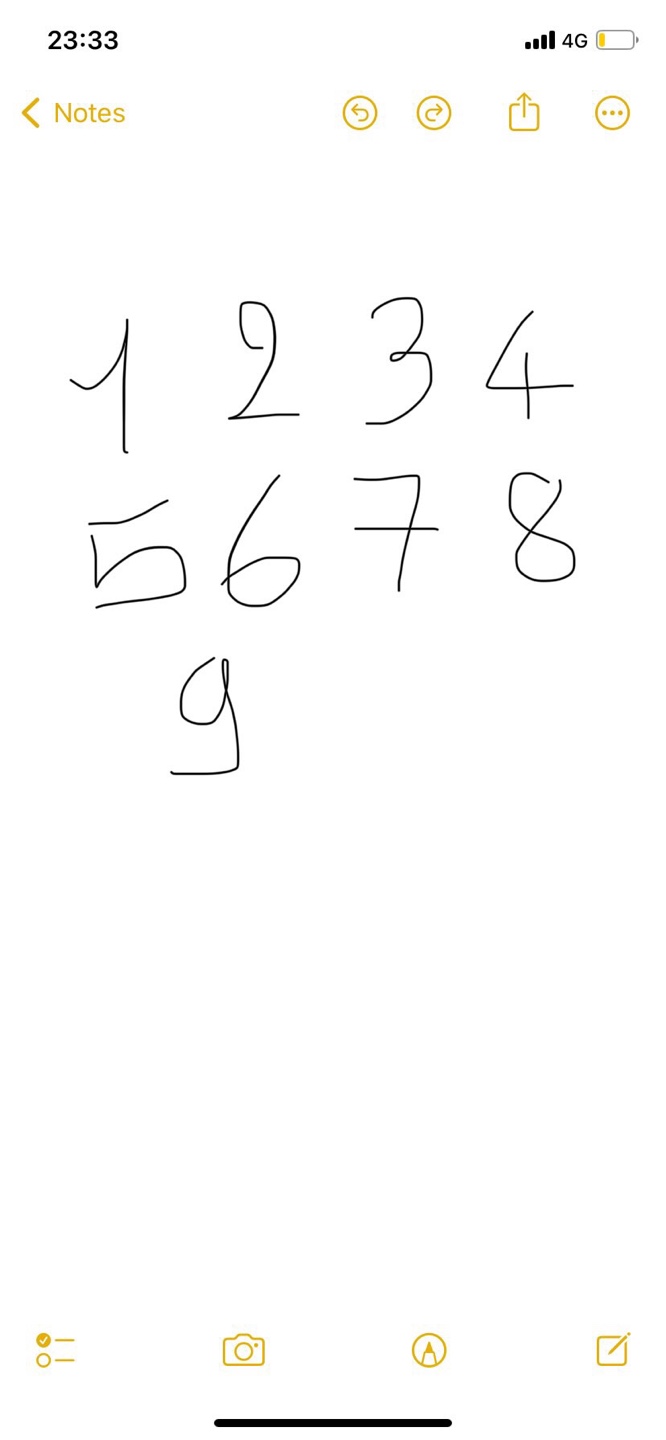 23:33 4G
Notes
1 2 3 4
5 6 7 8
9